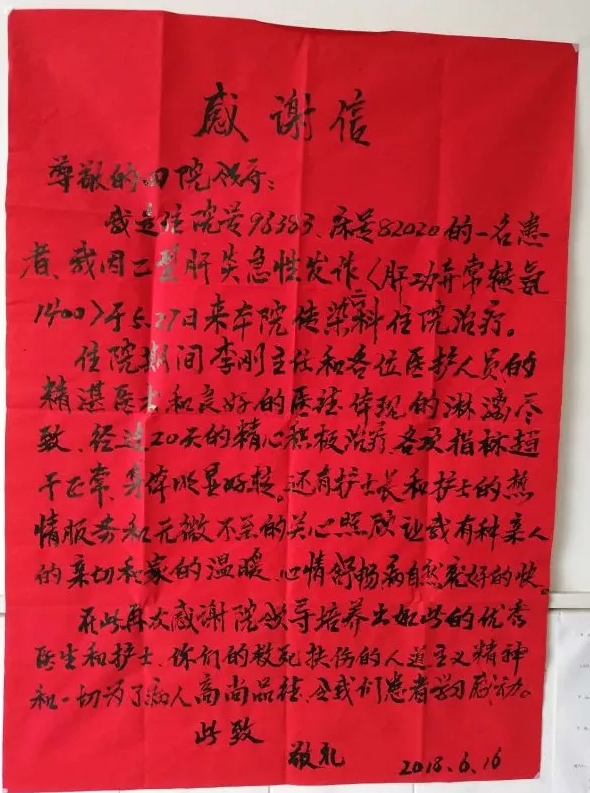 感谢信
尊敬的四院领导:
我是住院号98383、床号82020的一名患
者、我因乙型肝炎急性发作〈肝功异常转氨
1400〉于5.27日来本院传染病科住院治疗。
住院期间李刚主任和各位医护人员的
精湛医士和良好的医德体现的淋漓尽
致、经过20天的精心积极治疗、各项指标趋
于正常、身体明显好转。还有护士长和护士的热
情服务和无微不至的关心照顾让我有种亲人
的亲切和家的温暖、心情舒畅病自然就好的快。
在此再次感谢院领导培养出如此的优秀
医生和护士、你们的救死扶伤的人道主义精神
和一切为了病人高尚品德、令我们患者学习感动。
此致
敬礼
2018.6.16